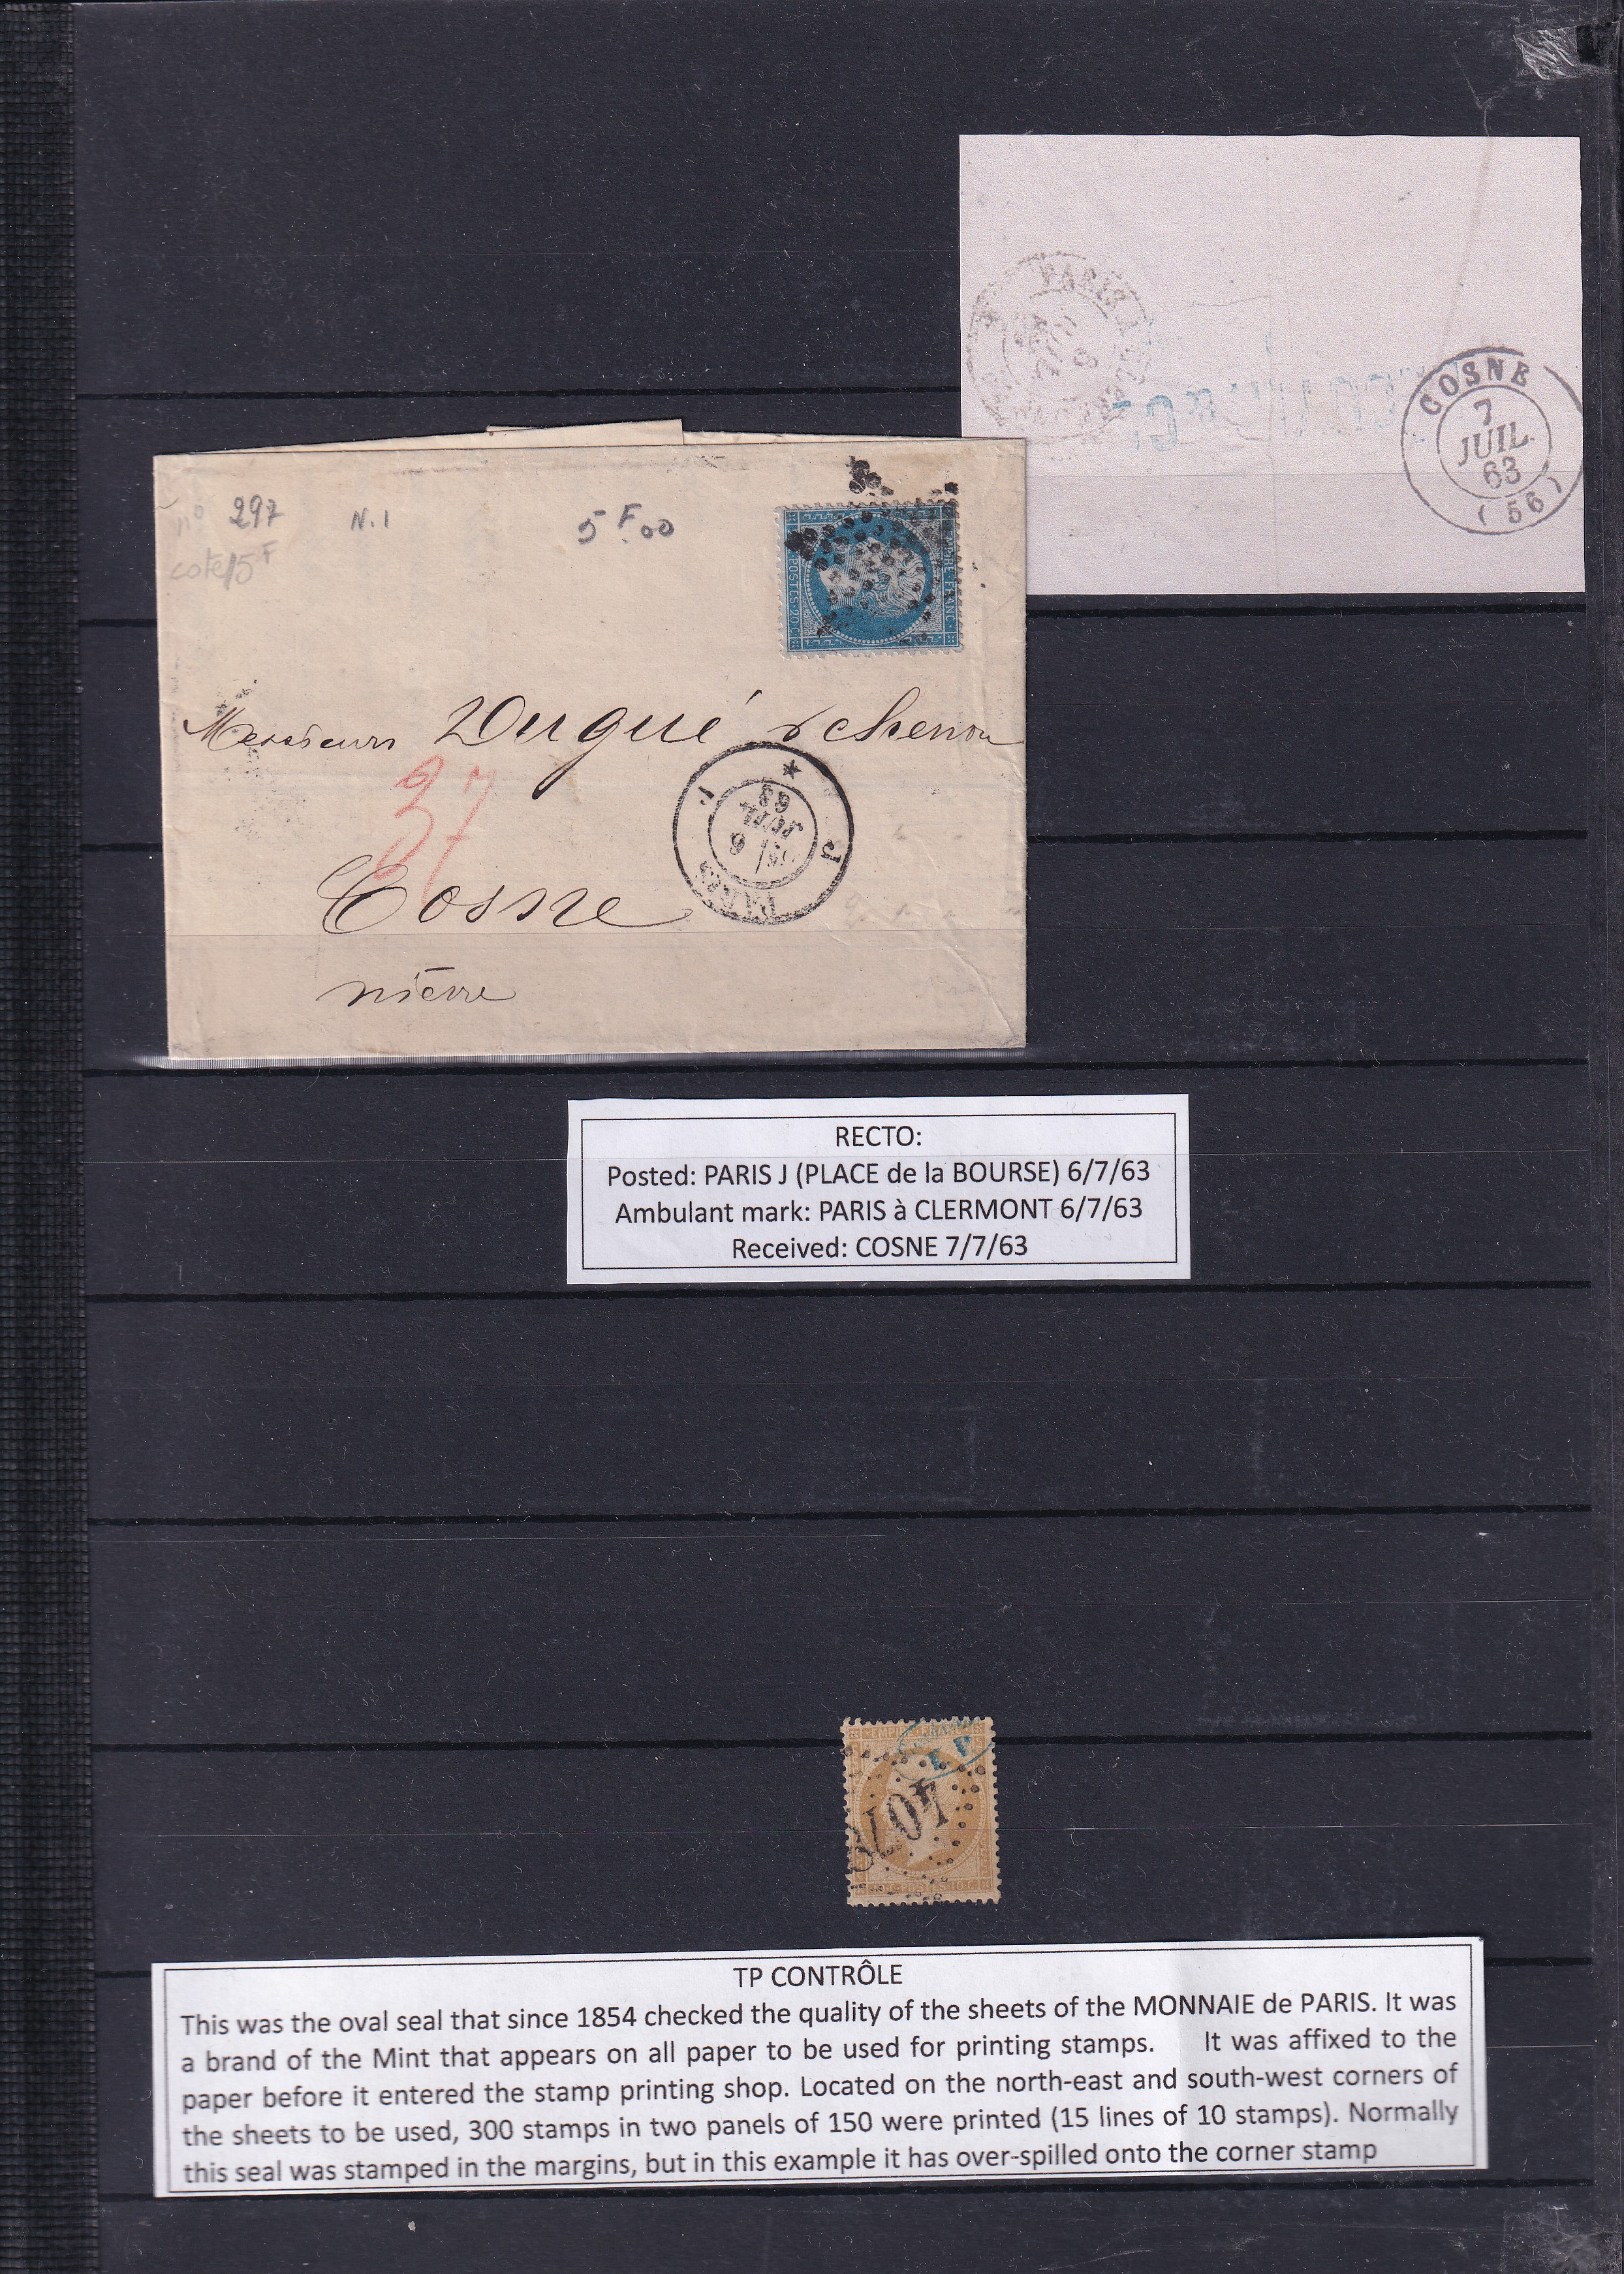 COSNE
7
JUIL.
63
(56)
nº 297
N.1
5F.00
cote 15F
EMPIRE FRANC
POSTES 20 C
Messieurs Dugué & chenou
37
Cosne
nièvre
J
PARIS
J
6
JUIL
63
RECTO:
Posted: PARIS J (PLACE de la BOURSE) 6/7/63
Ambulant mark: PARIS à CLERMONT 6/7/63
Received: COSNE 7/7/63
4078
POSTES 10 C
TP CONTRÔLE
This was the oval seal that since 1854 checked the quality of the sheets of the MONNAIE de PARIS. It was
a brand of the Mint that appears on all paper to be used for printing stamps. It was affixed to the
paper before it entered the stamp printing shop. Located on the north-east and south-west corners of
the sheets to be used, 300 stamps in two panels of 150 were printed (15 lines of 10 stamps). Normally
this seal was stamped in the margins, but in this example it has over-spilled onto the corner stamp